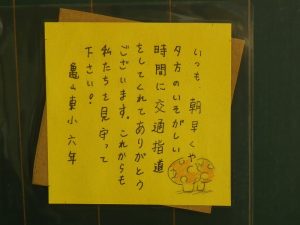 いつも、朝早くや
夕方のいそがしい
時間に交通指導
をしてくれてありがとう
ございます。これからも
私たちを見守って
下さい。
亀山東小六年